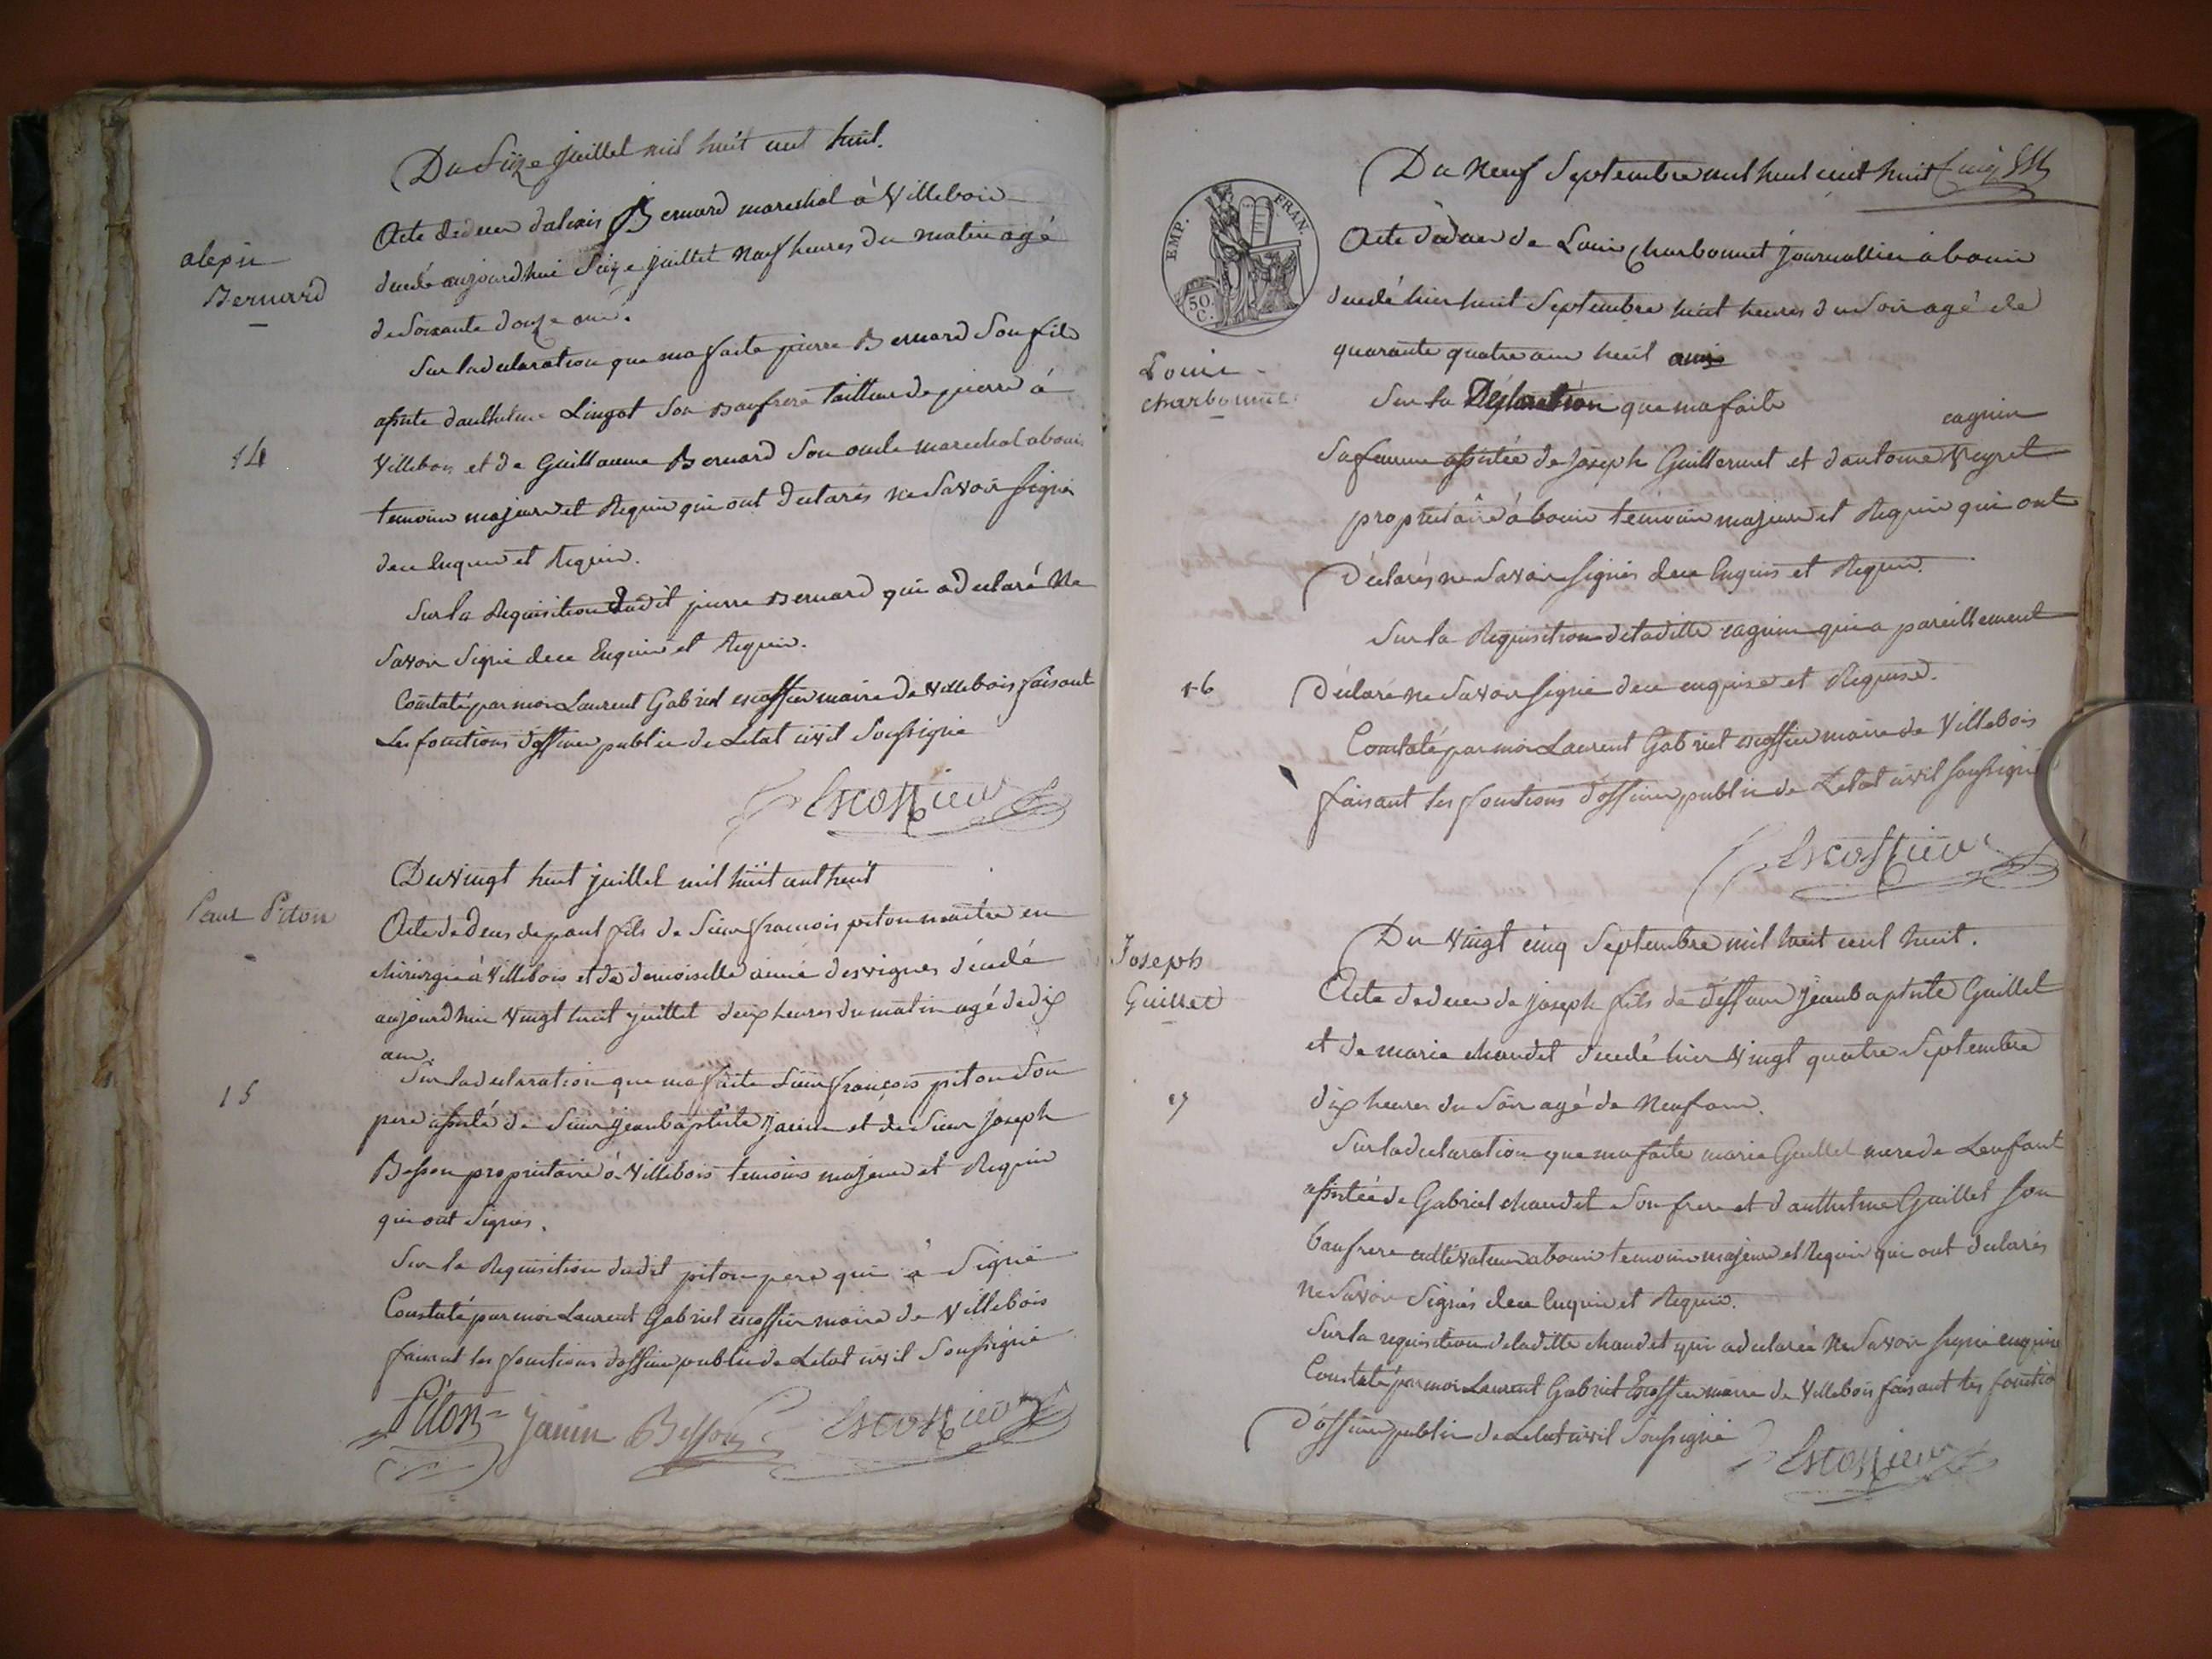 Du Seize juillet mil huit cent huit.
alexis
Bernard
14
Acte de deces dalexis Bernard mareschal à Villebois
decedé aujourdhui Seize juillet neuf heures du matin agé
de Soixante douze ans.
Sur la declaration que ma faite pierre Bernard Son fils
assisté danthelme Lingot Son Baufrere tailleur de pierre à
Villebois et de Guillaume Bernard Son oncle mareschal abouis
temoins majeurs et Requis qui ont declarés ne Savoir Signer
de ce Enquis et Requis.
Sur la Requisition dudit pierre Bernard qui a declaré Ne
Savoir Signé de ce Enquis et Requis.
Constaté par moi Laurent Gabriel escoffier maire de Villebois faisant
Les fonctions d'officier public de Letat civil Soussigné
Escoffier
Paul Piton
15
Du Vingt huit juillet mil huit cent huit
Acte de deces de paul fils de Sieur francois piton maitre en
chirurgie à Villebois et de demoiselle aimé desvignes décedé
aujourdhui Vingt huit juillet deux heures du matin agé de dix
ans.
Sur la declaration que ma faite Sieur françois piton Son
pere assisté de Sieur jean baptiste Janin et de Sieur Joseph
Besson propriétaire à Villebois temoins majeurs et Requis
qui ont Signés.
Sur la Requisition dudit piton pere qui à Signé
Constaté par moi Laurent Gabriel escoffier maire de Villebois
faisant les fonctions d'officier public de Letat civil Soussigné
Piton Janin Besson Escoffier
Du Neuf Septembre mil huit cent huit
EMP. FRAN.
50 C.
Louis
charbonnet
16
Acte de deces de Louis Charbonnet journallier à bouis
decedé hier huit Septembre huit heures du Soir agé de
quarante quatre ans
Sur la Déclaration que ma faite
cagnin
Sa femme assistée de Joseph Guillermet et dantoine Veyret
propriétaire à bouis temoins majeurs et Requis qui ont
Déclarés ne Savoir Signés de ce Enquis et Requis.
Sur la Requisition de laditte cagnin qui a pareillement
Déclaré ne Savoir Signé de ce enquise et Requise.
Constaté par moi Laurent Gabriel escoffier maire de Villebois
faisant les fonctions d'officier public de Letat civil Soussigné
Escoffier
Joseph
Guillet
17
Du Vingt cinq Septembre mil huit cent huit.
Acte de deces de joseph fils de deffunt jean baptiste Guillet
et de marie chaudet decedé hier Vingt quatre Septembre
dix heures du Soir agé de Neuf ans.
Sur la declaration que ma faite marie Guillet mere de Lenfant
assistée de Gabriel chaudet Son frere et d'anthelme Guillet Son
baufrere cultivateurs abouis temoins majeurs et Requis qui ont declarés
ne Savoir Signés de ce Enquis et Requis.
Sur la requisition de laditte chaudet qui a declarée Ne Savoir Signé enquise
Constaté par moi Laurent Gabriel Escoffier maire de Villebois faisant les fonctio
D'officier public de Letat civil Soussigné
Escoffier